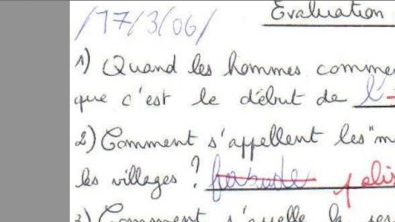 /17/3/06/
Evaluation
1) Quand les hommes comme
que c'est le début de l'
2) Comment s'appellent les "m
les villages ?
3) Comment s'appelle la